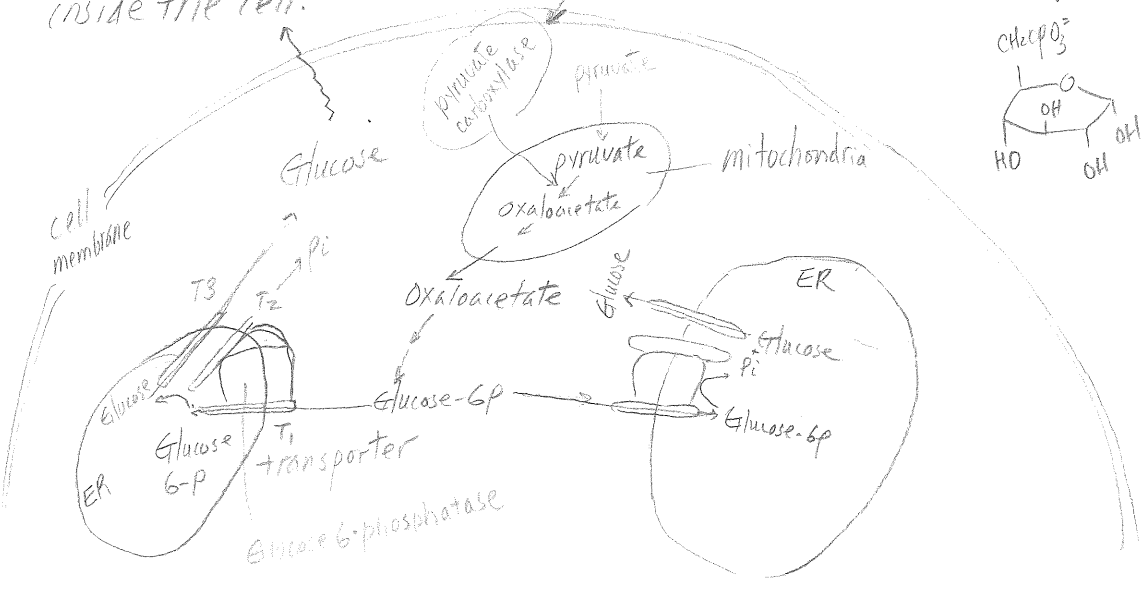 inside the cell.
CH2OPO3=
O
OH
OH
HO
OH
pyruvate
carboxylase
pyruvate
pyruvate
mitochondria
oxaloacetate
Glucose
cell
membrane
Pi
T3
T2
Oxaloacetate
Glucose
ER
Glucose
Pi
Glucose
Glucose-6p
Glucose-6p
Glucose
6-p
T1
transporter
ER
Glucose 6-phosphatase